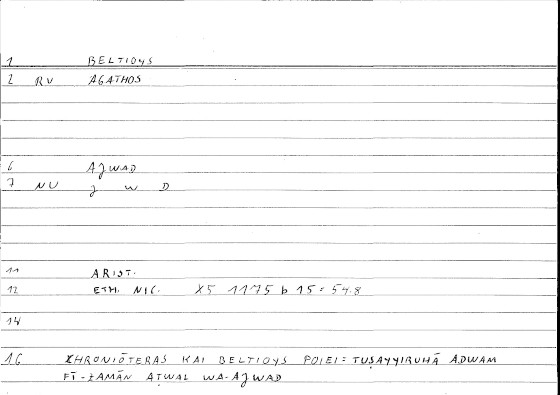 1 BELTIOYS
2 RV AGATHOS
6 AJWAD
7 NU J W D
11 ARIST.
12 ETH. NIC. X5 1175 b 15 = 54.8
14
16 XHRONIŌTERAS KAI BELTIOYS POIEI = TUṢAYYIRUHĀ ADWAM
FĪ-ZAMĀN AṬWAL WA-AJWAD